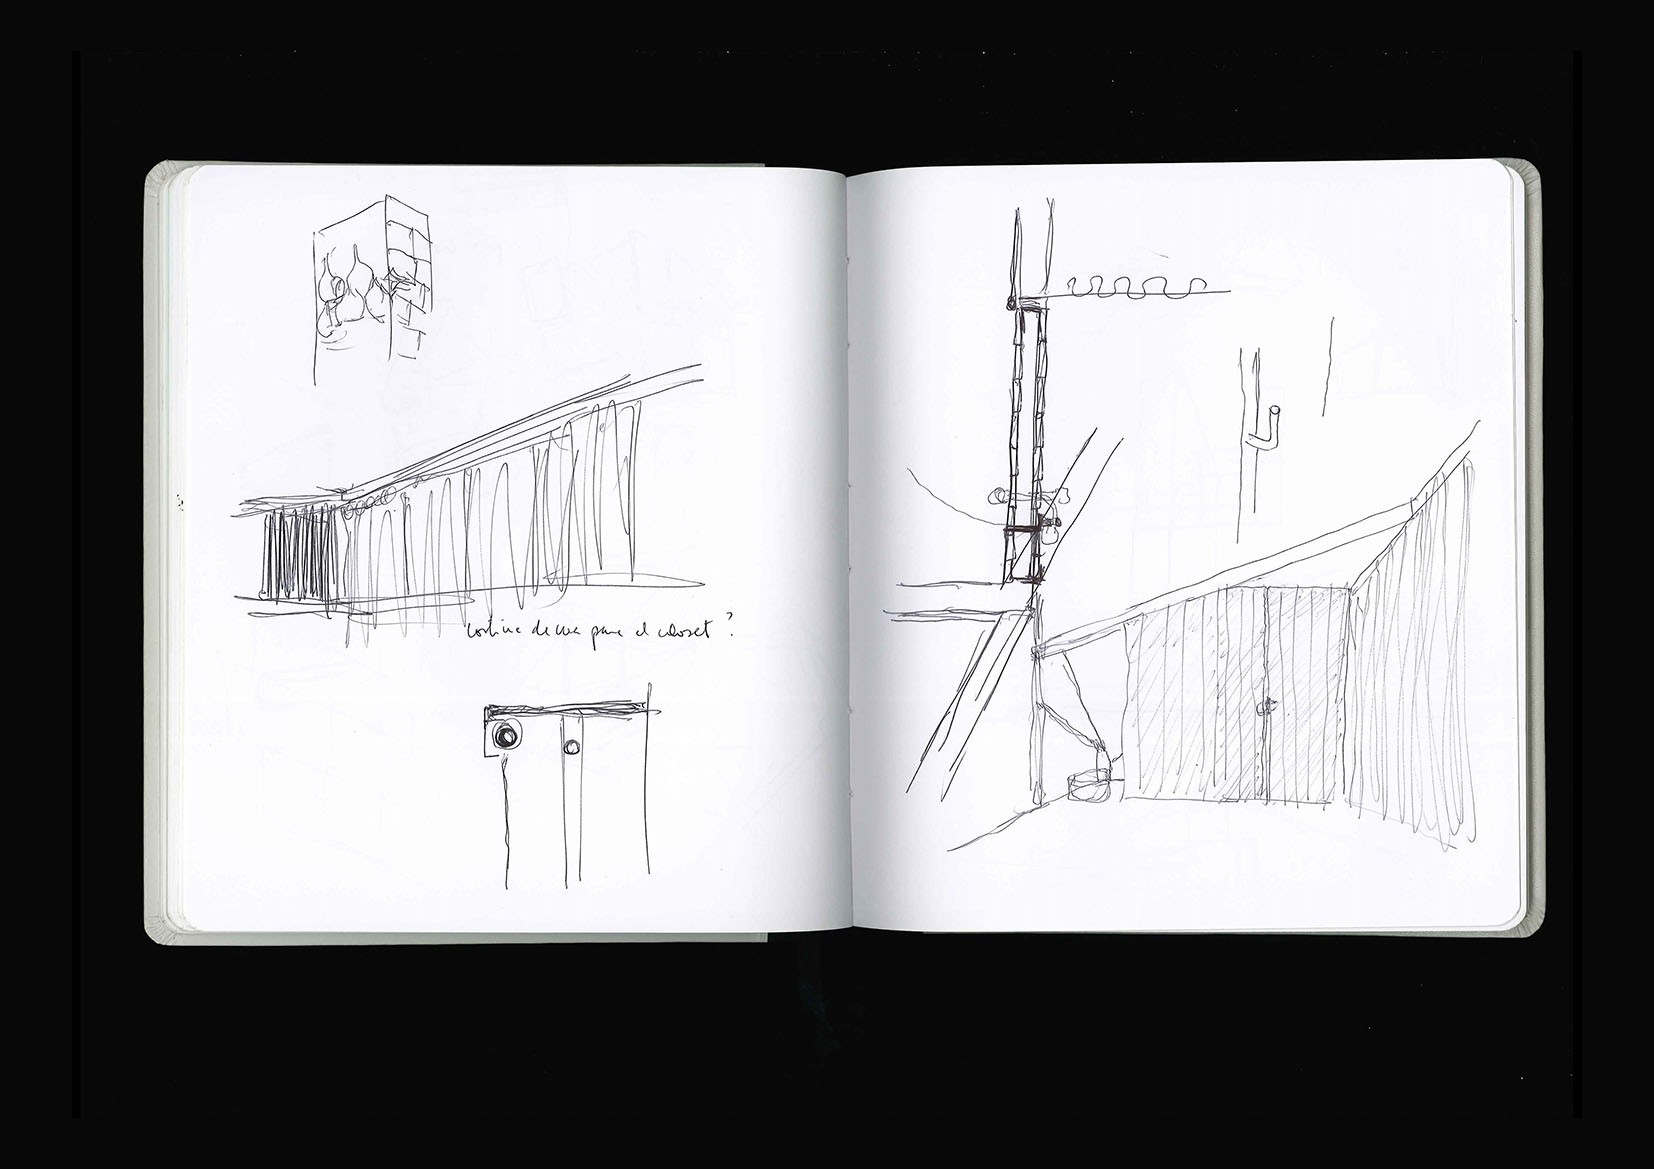 cortina de cuero para el closet ?